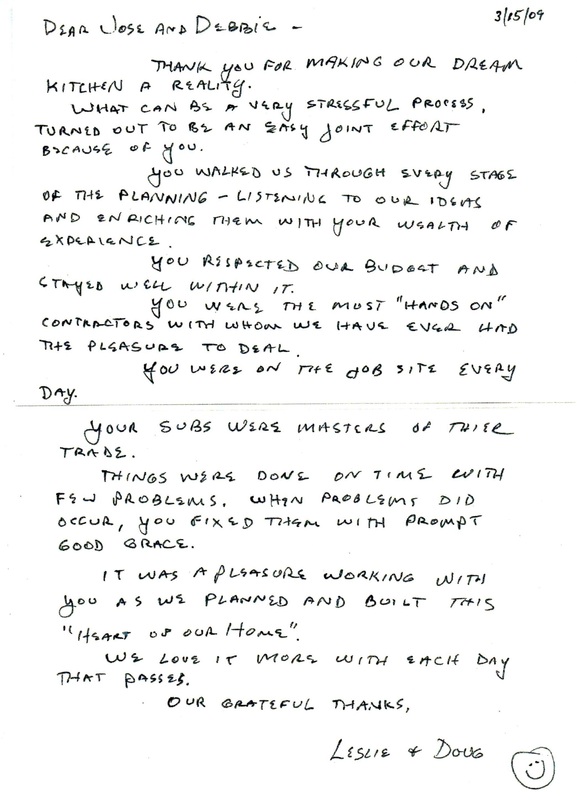 3/15/09
DEAR JOSE AND DEBBIE -
THANK YOU FOR MAKING OUR DREAM
KITCHEN A REALITY.
WHAT CAN BE A VERY STRESSFUL PROCESS,
TURNED OUT TO BE AN EASY JOINT EFFORT
BECAUSE OF YOU.
YOU WALKED US THROUGH EVERY STAGE
OF THE PLANNING - LISTENING TO OUR IDEAS
AND ENRICHING THEM WITH YOUR WEALTH OF
EXPERIENCE.
YOU RESPECTED OUR BUDGET AND
STAYED WELL WITHIN IT.
YOU WERE THE MOST "HANDS ON"
CONTRACTORS WITH WHOM WE HAVE EVER HAD
THE PLEASURE TO DEAL.
YOU WERE ON THE JOB SITE EVERY
DAY.
YOUR SUBS WERE MASTERS OF THIER
TRADE.
THINGS WERE DONE ON TIME WITH
FEW PROBLEMS. WHEN PROBLEMS DID
OCCUR, YOU FIXED THEM WITH PROMPT
GOOD GRACE.
IT WAS A PLEASURE WORKING WITH
YOU AS WE PLANNED AND BUILT THIS
"HEART OF OUR HOME".
WE LOVE IT MORE WITH EACH DAY
THAT PASSES.
OUR GRATEFUL THANKS,
LESLIE & DOUG